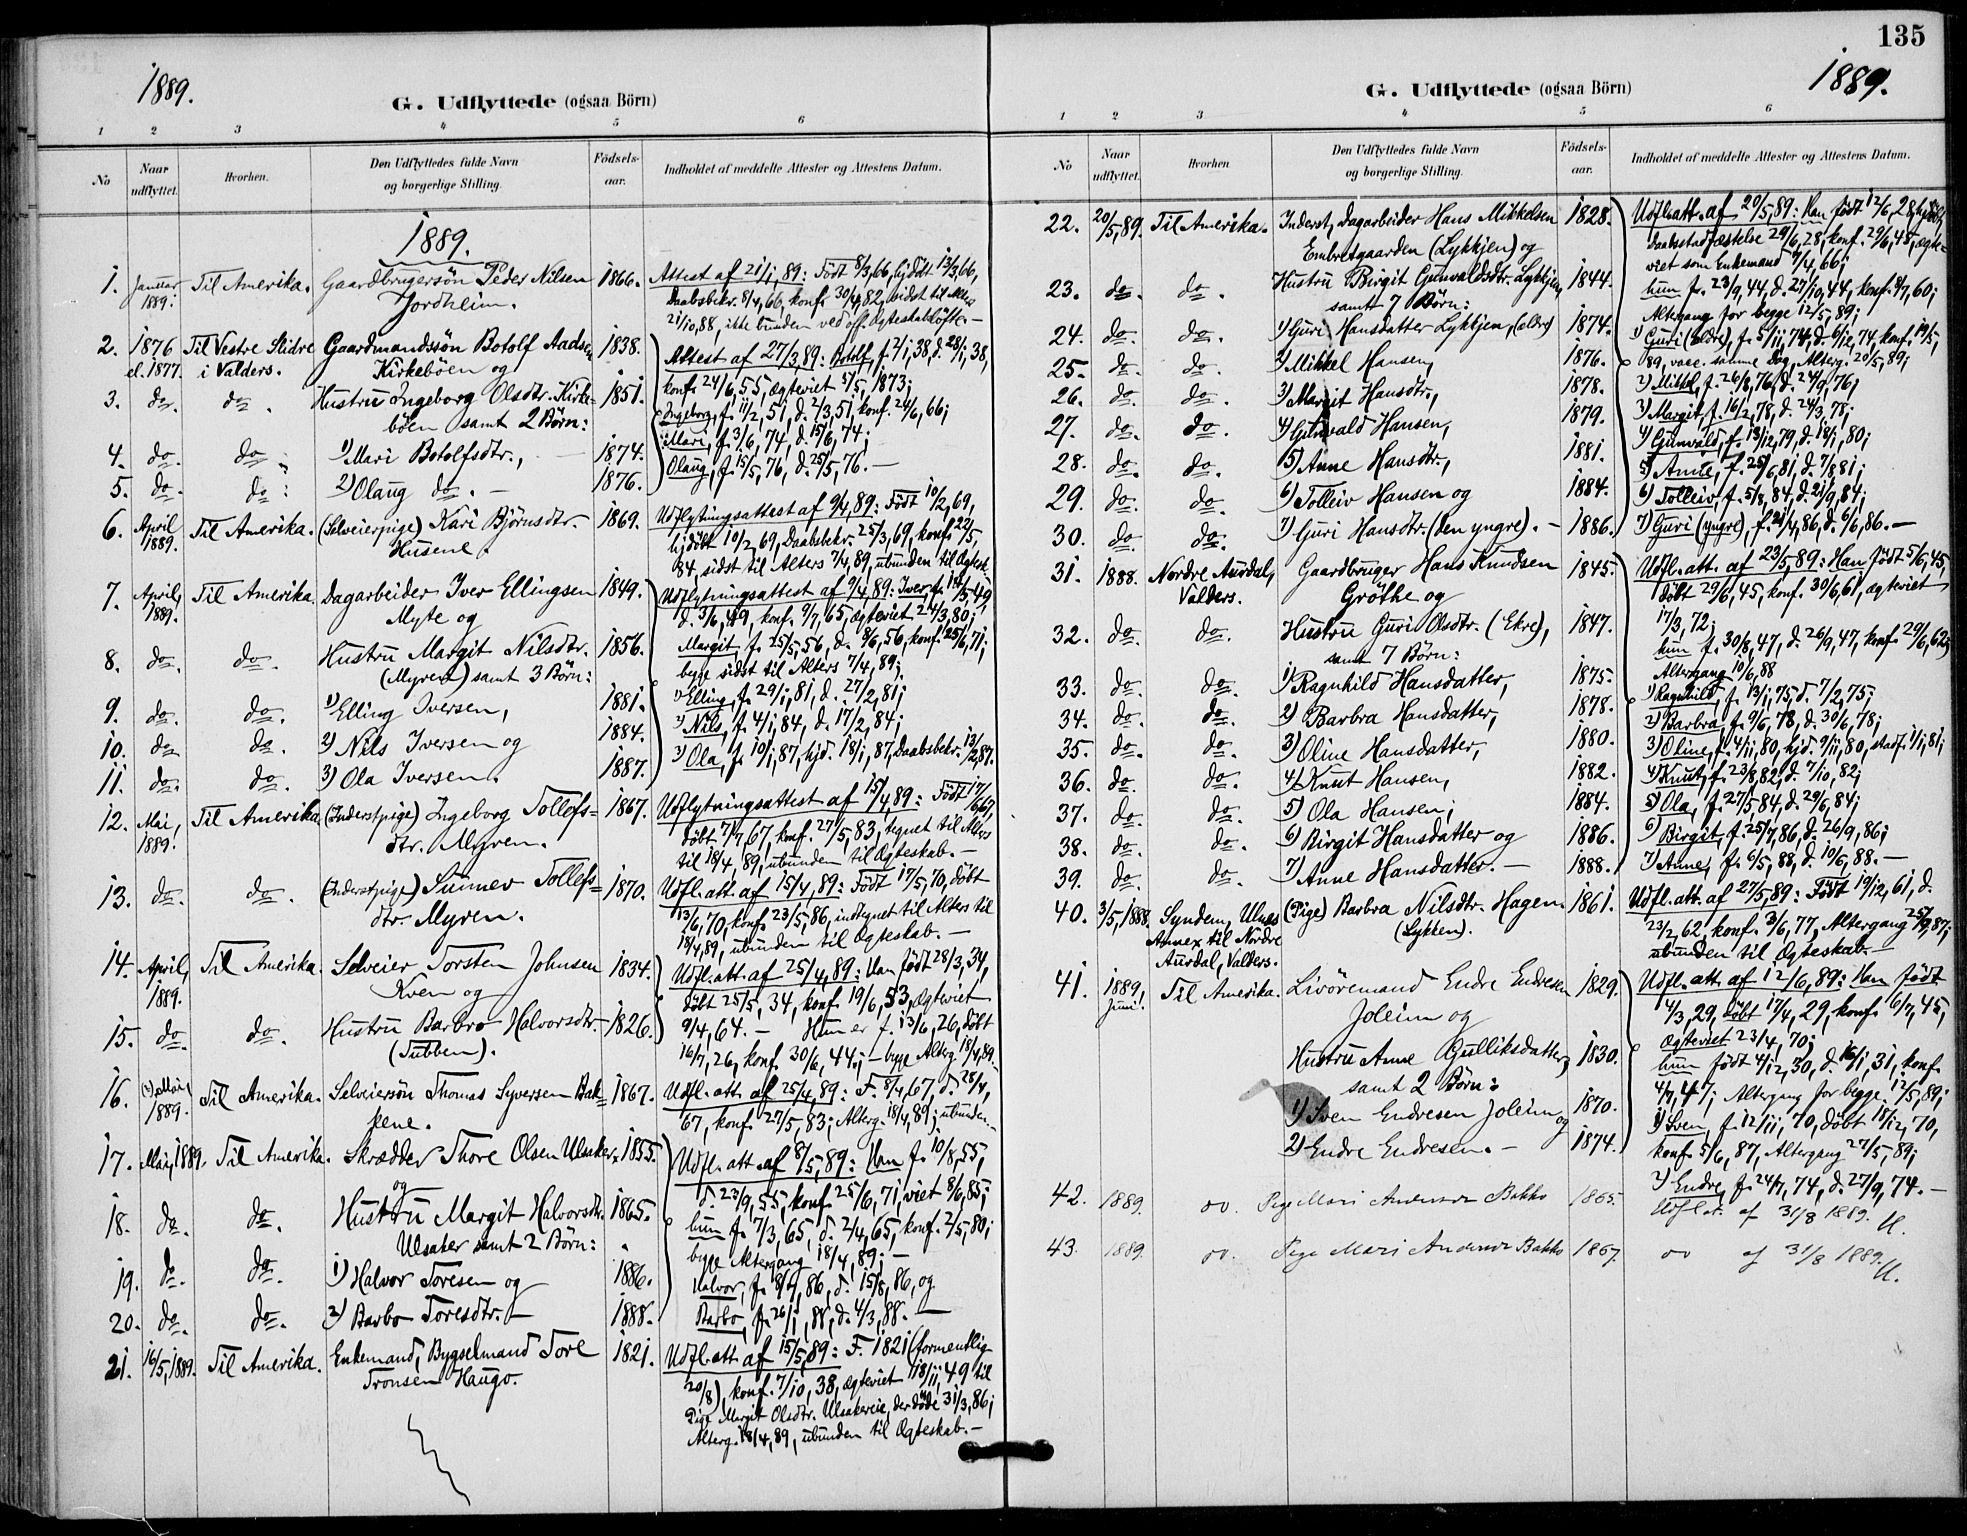 135
1889.
G. Udflyttede (ogsaa Börn)
1 2 3 4 5 6
No
Naar udflyttet.
Hvorhen.
Den Udflyttedes fulde Navn og borgerlige Stilling.
Födsels-aar.
Indholdet af meddelte Attester og Attestens Datum.
1889.
1. Januar 1889. Til Amerika. Gaardbrugersön Peder Nilsen 1866. Attest af 21/1, 89: Född 8/3, 66, hj.döbt 13/3, 66,
Jordheim. Daabsbekr. 8/4, 66, konf. 30/4, 82, sidst til Alters
21/10, 88, ikke bunden ved off. Ægteskabslöfte.—
2. 1876 Til Vestre Slidre Gaardmandssön Botolf Aadsen 1838. Attest af 27/3, 89: Botolf, f. 2/1, 38, d. 28/1, 38,
el. 1877. i Valders. Kirkeböen og konf. 24/6, 55, ægteviet 5/5, 1873;
3. do. do. Hustru Ingeborg Olsdtr. Kirke- 1851. Ingeborg, f. 11/2, 51, d. 2/3, 51, konf. 24/6, 66;
böen samt 2 Börn: Mari, f. 3/6, 74, d. 15/6, 74;
4. do. do. 1) Mari Botolfsdtr., 1874. Olaug, f. 15/5, 76, d. 25/5, 76.—
5. do. do. 2) Olaug do. — 1876.
6. April 1889. Til Amerika. (Selveierpige) Kari Björnsdtr. 1869. Udflytningsattest af 9/4, 89: Född 10/2, 69,
Husene. hj.döbt 10/2, 69, Daabsbekr. 25/3, 69, konf. 22/5,
84, sidst til Alters 7/4, 89, ubunden til Ægtesk.
7. April, 1889. Til Amerika. Dagarbeider Iver Ellingsen 1849. Udflytningsattest af 9/4, 89: Iver, f. 14/5, 49,
Myte og d. 3/6, 49, konf. 9/7, 65, ægteviet 24/3, 80;
8. do. do. Hustru Margit Nilsdtr. 1856. Margit, f. 25/5, 56, d. 8/6, 56, konf. 25/6, 71;
(Myren) samt 3 Börn: begge sidst til Alters 7/4, 89;
9. do. do. 1) Elling Iversen, 1881. 1) Elling, f. 29/1, 81, d. 27/2, 81;
10. do. do. 2) Nils Iversen og 1884. 2) Nils, f. 4/1, 84, d. 17/2, 84;
11. do. do. 3) Ola Iversen. 1887. 3) Ola, f. 10/1, 87, hjd. 18/1, 87, Daabsbekr. 13/2, 87.
12. Mai, 1889. Til Amerika. (Inderstpige) Ingeborg Tollefs= 1867. Udflytningsattest af 15/4, 89: Född 17/6, 67,
dtr. Myren. döbt 7/7, 67, konf. 27/5, 83, tegnet til Alters
til 18/4, 89, ubunden til Ægteskab.—
13. do. do. (Inderstpige) Sünnev Tollefs= 1870. Udfl.att. af 15/4, 89: Född 17/5, 70, döbt
dtr. Myren. 13/6, 70, konf. 23/5, 86, indtegnet til Alters til
18/4, 89, ubunden til Ægteskab.—
14. April, 1889. Til Amerika. Selveier Torsten Johnsen 1834. Udfl.att. af 25/4, 89: Han född 28/3, 34,
Kven og döbt 25/5, 34, konf. 19/6, 53, Ægteviet
15. do. do. Hustru Barbro Halvorsdtr. 1826. 9/4, 64.— Hun er f. 13/6, 26, döbt
(Tubben). 16/7, 26, konf. 30/6, 44;— begge Alterg. 18/4, 89.
16. Mai, 1889. Til Amerika. Selveiersön Thomas Syversen Bak= 1867. Udfl. att. af 25/4, 89: F. 8/4, 67, d. 28/4,
kene. 67, konf. 27/5, 83; Alterg. 18/4, 89; ubunden.
17. Mai, 1889. Til Amerika. Skrædder Thore Olsen Ulsaker 1855. Udfl. att. af 8/5, 89: Han f. 10/8, 55,
og d. 23/9, 55, konf. 25/6, 71, viet 8/6, 85;
18. do. do. Hustru Margit Halvorsdtr. 1865. hun f. 7/3, 65, d. 2/4, 65, konf. 2/5, 80;
Ulsaker samt 2 Börn: begge Altergang 18/4, 89;—
19. do. do. 1) Halvor Toresen og 1886. Halvor, f. 8/7, 86, d. 15/8, 86, og
20. do. do. 2) Barbo Toresdtr.— 1888. Barbo, f. 26/1, 88, d. 4/3, 88.—
21. 16/5, 1889. Til Amerika. Enkemand, Bygselmand Tore 1821. Udfl. att. af 15/5, 89: F. 1821 (formentlig
Tronsen Haugo. 20/8), konf. 7/10, 38, ægteviet 18/11, 49 til
Pige Margit Olsdtr. Ulsakereie, der döde 31/3, 86;
Alterg. 18/4, 89, ubunden til Ægteskab.—
1889.
G. Udflyttede (ogsaa Börn)
1 2 3 4 5 6
No
Naar udflyttet.
Hvorhen.
Den Udflyttedes fulde Navn og borgerlige Stilling.
Födsels-aar.
Indholdet af meddelte Attester og Attestens Datum.
22. 20/5, 89. Til Amerika. Inderst, Dagarbeider Hans Mikkelsen 1828. Udfl.att. af 20/5, 89: Han född 12/6, 28, hj.döbt,
Embretgaarden (Lykkjen) og Daabsstadfæstelse 29/6, 28, konf. 29/6, 45, ægte-
viet som Enkemand 9/4, 66;
23. do. do. Hustru Birgit Gunvaldsdtr. Lykkjen 1844. hun f. 23/9, 44, d. 27/10, 44, konf. 8/7, 60;
samt 7 Börn: Altergang for begge 12/5, 89;
24. do. do. 1) Guri Hansdatter Lykkjen, (ældre) 1874. 1) Guri (ældre), f. 5/11, 74, d. 6/12, 74, konf. 19/5,
89, vacc. samme Dag, Alterg. 20/5, 89;
25. do. do. 2) Mikkel Hansen, 1876. 2) Mikkel, f. 26/8, 76, d. 24/9, 76;
26. do. do. 3) Margit Hansdtr., 1878. 3) Margit, f. 16/2, 78, d. 24/3, 78;
27. do. do. 4) Gunvald Hansen, 1879. 4) Gunvald, f. 13/12, 79, d. 18/1, 80;
28. do. do. 5) Anne Hansdtr., 1881. 5) Anne, f. 25/6, 81, d. 7/8, 81;
29. do. do. 6) Tolleiv Hansen og 1884. 6) Tolleiv, f. 5/8, 84, d. 21/9, 84;
30. do do. 7) Guri Hansdtr. (den yngre).— 1886. 7) Guri (yngre), f. 21/4, 86, d. 6/6, 86.—
31. 1888. Nordre Aurdal, Valders. Gaardbruger Hans Knudsen 1845. Udfl. att. af 23/5, 89: Han född 5/6, 45,
Gröthe og döbt 29/6, 45, konf. 30/6, 61, ægteviet
17/3, 72;
32. do. do. Hustru Guri Olsdtr. (Ekre), 1847. hun f. 30/8, 47, d. 26/9, 47, konf. 29/6, 62;
samt 7 Börn: Altergang 10/6, 88
33. do. do. 1) Ragnhild Hansdatter, 1875. 1) Ragnhild, f. 13/1, 75, d. 7/2, 75;
34. do. do. 2) Barbra Hansdatter, 1878. 2) Barbra, f. 9/6, 78, d. 30/6, 78;
35. do. do. 3) Oline Hansdatter, 1880. 3) Oline, f. 4/11, 80, hjd. 9/11, 80, stadf. 1/1, 81;
36. do. do. 4) Knut Hansen, 1882. 4) Knut, f. 23/8, 82, d. 7/10, 82;
37. do. do. 5) Ola Hansen; 1884. 5) Ola, f. 27/5, 84, d. 29/6, 84;
38. do. do. 6) Birgit Hansdatter og 1886. 6) Birgit, f. 25/7, 86, d. 26/9, 86;
39. do. do. 7) Anne Hansdatter.— 1888. 7) Anne, f. 6/5, 88, d. 10/6, 88.—
40. 3/5, 1888. Syndem, Ulnes (Pige) Barbra Nilsdtr. Hagen 1861. Udfl. att. af 27/5, 89: Född 19/12, 61, d.
Annex til Nordre (Lykken). 23/2, 62, konf. 3/6, 77, Altergang 25/9, 87;
Aurdal, Valders. ubunden til Ægteskab.—
41. 1889, Juni. Til Amerika. Livöremand Endre Endresen 1829. Udfl. att. af 12/6, 89: Han född
Joleim og 14/3, 29, döbt 17/4, 29, konf. 6/7, 45,
Ægteviet 23/4, 70;
Hustru Anne Gulliksdatter, 1830. hun född 4/12, 30, d. 16/1, 31, konf.
samt 2 Börn: 4/7, 47; Altergang for begge 12/5, 89;
1) Sven Endresen Joleim og 1870. 1) Sven, f. 12/11, 70, döbt 18/12, 70,
konf. 5/6, 87, Altergang 27/5, 89;
2) Endre Endresen.— 1874. 2) Endre, f. 24/7, 74, d. 27/9, 74.—
42. 1889. do. Pige Mari Andersdr Bakko 1865. Udfl. A. af 31/8 1889. U.
43. 1889. do. Pige Mari Andersdr Bakko 1867. do af 31/8 1889. U.